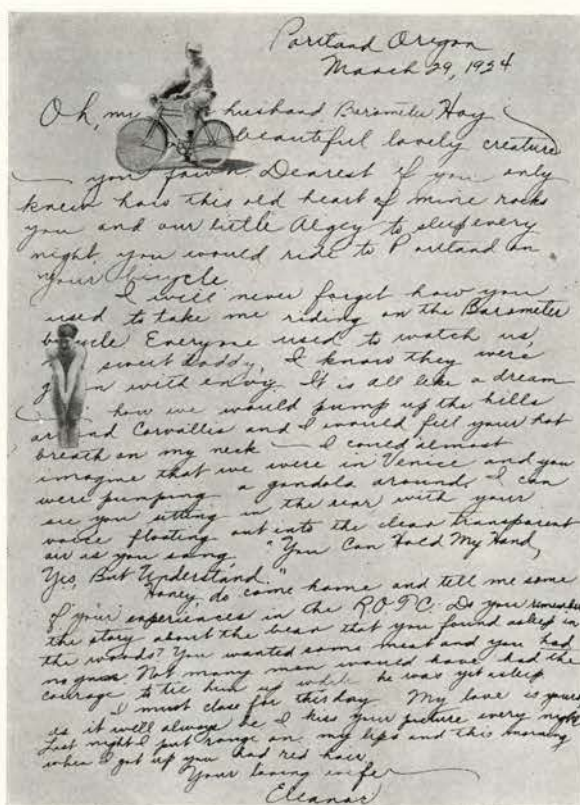 Portland Oregon
March 29, 1924
Oh, my husband Barometer Hoy
beautiful lovely creature
you fawn Dearest if you only
knew how this old heart of mine rocks
you and our little Algey to sleep every
night, you would ride to Portland on
your bicycle.
I will never forget how you
used to take me riding on the Barometer
bicycle. Everyone used to watch us,
sweet Daddy, I know they were
green with envy. It is all like a dream
how we would pump up the hills
around Corvallis and I would feel your hot
breath on my neck — I could almost
imagine that we were in Venice and you
were pumping a gondola around. I can
see you sitting in the rear with your
voice floating out into the clear transparent
air as you sang, "You Can Hold My Hand,
Yes, But Understand."
Honey, do come home and tell me some
of your experiences in the R.O.T.C. Do you remember
the story about the bear that you found asleep in
the woods? You wanted some meat and you had
no gun. Not many men would have had the
courage to tie him up while he was yet asleep.
I must close for this day. My love is yours
as it will always be. I kiss your picture every night.
Last night I put rouge on my lips and this morning
when I got up you had red hair.
Your loving wife
Eleanor